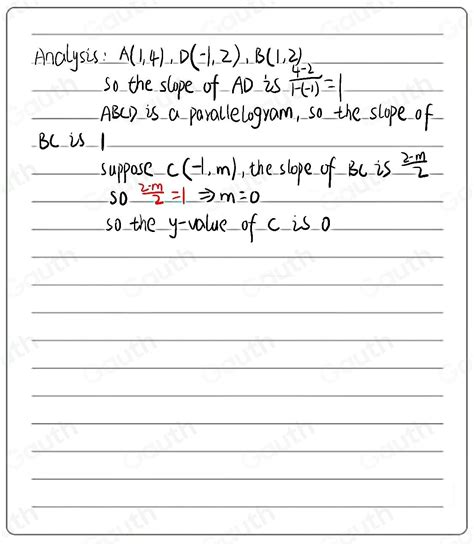 Analysis: A(1,4), D(-1,2), B(1,2)
so the slope of AD is \frac{4-2}{1-(-1)}=1
ABCD is a parallelogram, so the slope of
BC is 1
suppose C(-1,m), the slope of BC is \frac{2-m}{2}
so \frac{2-m}{2}=1 ⇒ m=0
so the y-value of C is 0